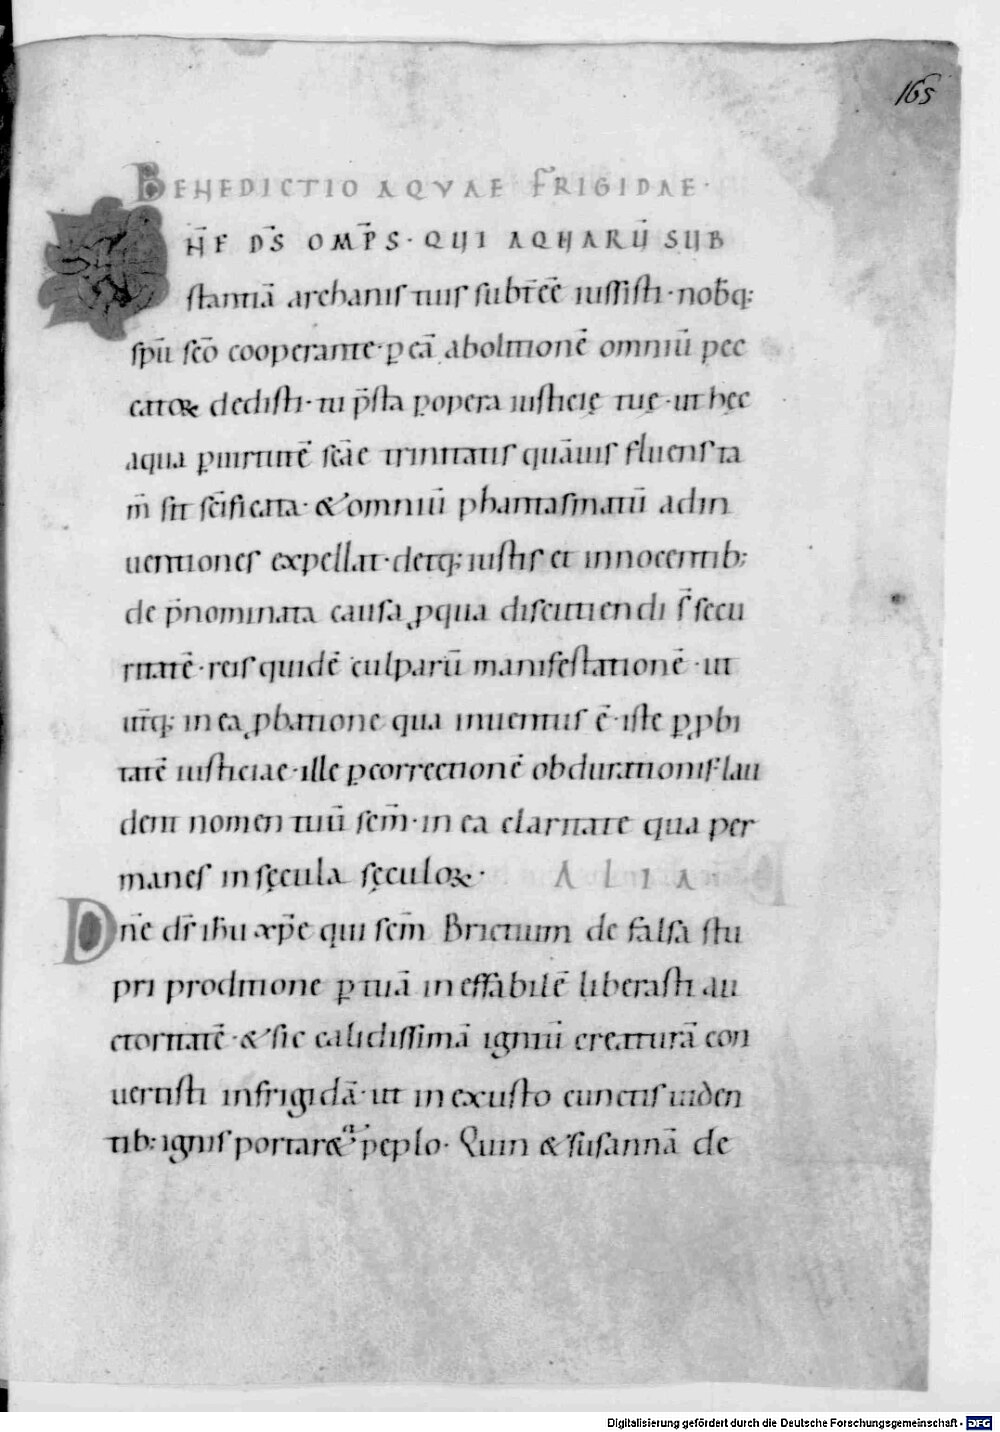 165
BENEDICTIO AQVAE FRIGIDAE·
DN̄E DS̄ OMP̄S· QUI AQUARŪ SUB
stantiā archanis tuis subēē iussisti· nob̄q;
sp̄u sc̄o cooperante· ꝑ eā abolitionē omniū pec
catoꝝ dedisti· tu p̄sta ꝓpera iusticię tuę· ut hęc
aqua ꝑuirtutē sc̄ae trinitatis quāuis fluens ta
m̄ sit sc̄ificata· & omniū phantasmatū adin
uentiones expellat· detq; iustis et innocentib;
de p̄nominata causa ꝓqua discutiendi s̄ secu
ritatē· reis quidē culparū manifestationē· ut
ut̄q; in ea ꝓbatione qua inuentus ē· iste ꝑ ꝓbi
tatē iusticiae· ille ꝑcorrectionē obdurationis· lau
dent nomen tuū sc̄m· in ea claritate qua per
manes insęcula sęculoꝝ· ALIA
Dn̄e ds̄ ih̄u xp̄e qui sc̄m Brictium de falsa stu
pri proditione ꝑ tuā ineffabilē liberasti au
ctoritatē· & sic calidissimā igniū creaturā con
uertisti infrigidā· ut in exusto cunctis uiden
tib; ignis portar& peplo· Quin & susannā de
Digitalisierung gefördert durch die Deutsche Forschungsgemeinschaft - DFG